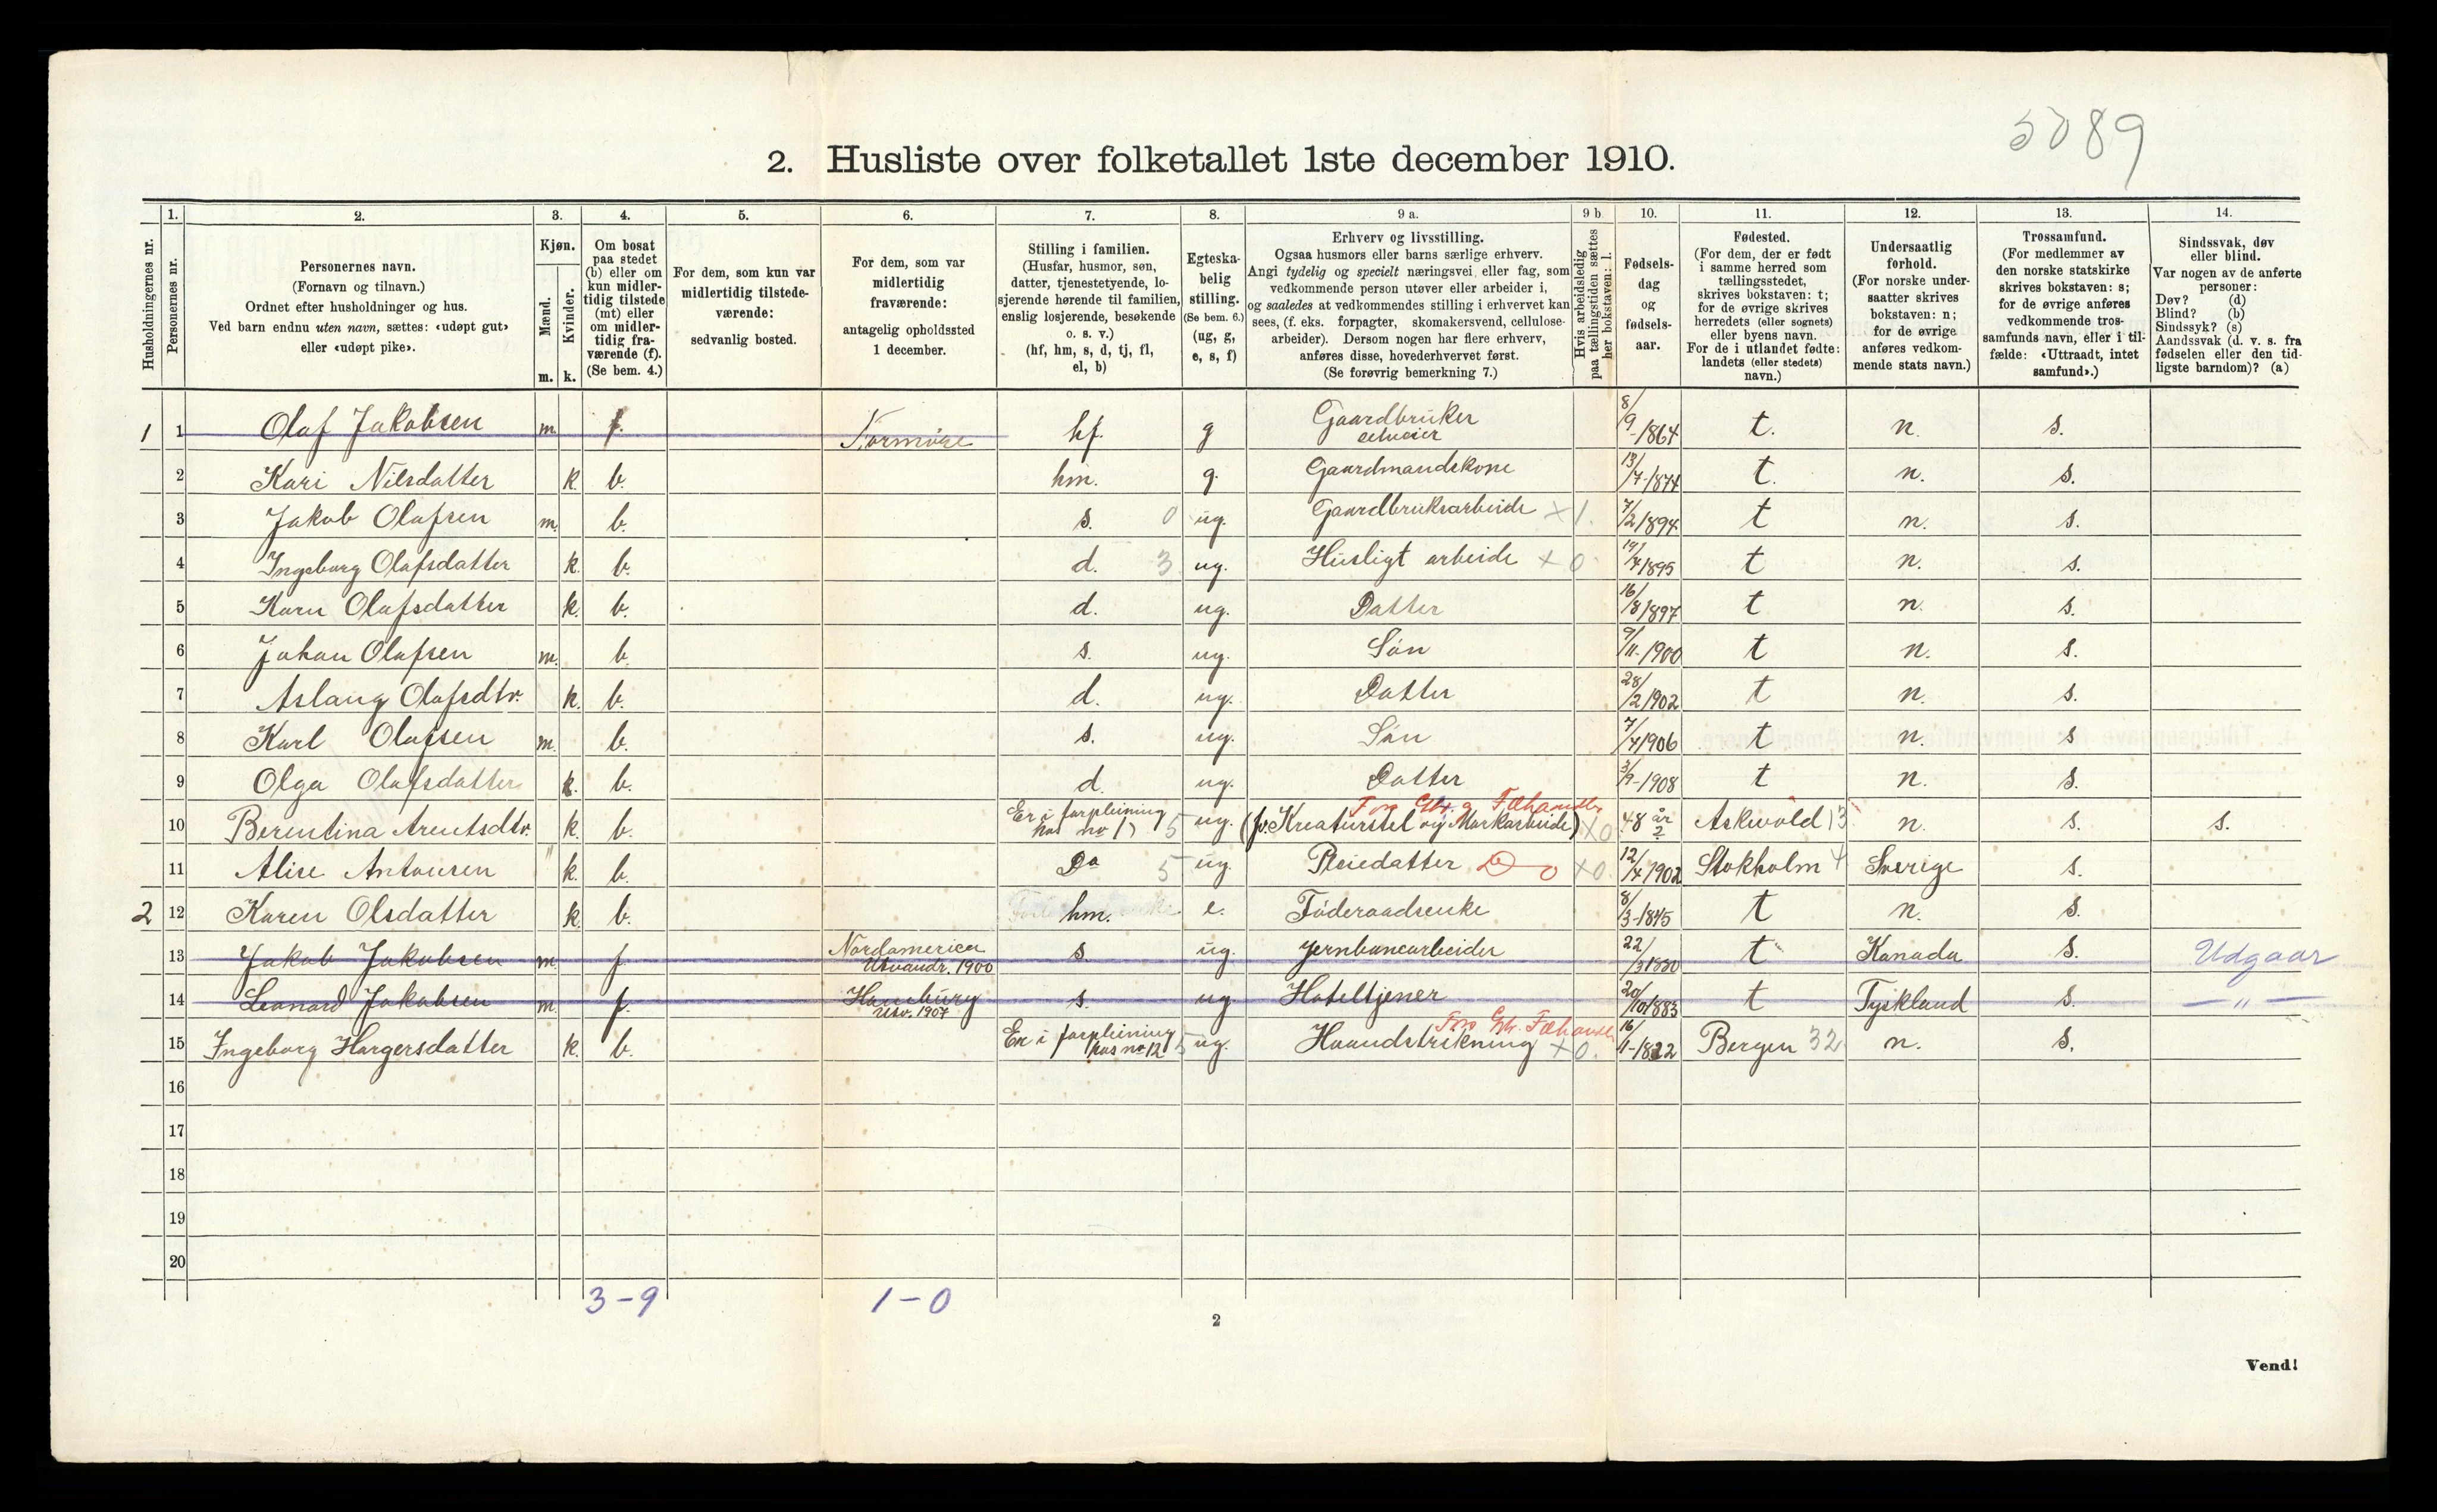 5089
2. Husliste over folketallet 1ste december 1910.
Husholdningernes nr.
1.
Personernes nr.
2.
Personernes navn.
(Fornavn og tilnavn.)
Ordnet efter husholdninger og hus.
Ved barn endnu uten navn, sættes: «udøpt gut»
eller «udøpt pike».
3.
Kjøn.
Mænd.
Kvinder.
m. k.
4.
Om bosat
paa stedet
(b) eller om
kun midler-
tidig tilstede
(mt) eller
om midler-
tidig fra-
værende (f).
(Se bem. 4.)
5.
For dem, som kun var
midlertidig tilstede-
værende:
sedvanlig bosted.
6.
For dem, som var
midlertidig
fraværende:
antagelig opholdssted
1 december.
7.
Stilling i familien.
(Husfar, husmor, søn,
datter, tjenestetyende, lo-
sjerende hørende til familien,
enslig losjerende, besøkende
o. s. v.)
(hf, hm, s, d, tj, fl,
el, b)
8.
Egteska-
belig
stilling.
(Se bem. 6.)
(ug, g,
e, s, f)
9 a.
Erhverv og livsstilling.
Ogsaa husmors eller barns særlige erhverv.
Angi tydelig og specielt næringsvei eller fag, som
vedkommende person utøver eller arbeider i,
og saaledes at vedkommendes stilling i erhvervet kan
sees, (f. eks. forpagter, skomakersvend, cellulose-
arbeider). Dersom nogen har flere erhverv,
anføres disse, hovederhvervet først.
(Se forøvrig bemerkning 7.)
9 b
Hvis arbeidsledig
paa tællingstiden sættes
her bokstaven: l.
10.
Fødsels-
dag
og
fødsels-
aar.
11.
Fødested.
(For dem, der er født
i samme herred som
tællingsstedet,
skrives bokstaven: t;
for de øvrige skrives
herredets (eller sognets)
eller byens navn.
For de i utlandet fødte:
landets (eller stedets)
navn.)
12.
Undersaatlig
forhold.
(For norske under-
saatter skrives
bokstaven: n;
for de øvrige
anføres vedkom-
mende stats navn.)
13.
Trossamfund.
(For medlemmer av
den norske statskirke
skrives bokstaven: s;
for de øvrige anføres
vedkommende tros-
samfunds navn, eller i til-
fælde: «Uttraadt, intet
samfund».)
14.
Sindssvak, døv
eller blind.
Var nogen av de anførte
personer:
Døv? (d)
Blind? (b)
Sindssyk? (s)
Aandssvak (d. v. s. fra
fødselen eller den tid-
ligste barndom)? (a)
1 1 Olaf Jakobsen m. f. hf. g Gaardbruker selveier 8/9-1864 t. n. s.
2 Kari Nilsdatter k. b. hm. g. Gaardmandskone 13/7-1874 t. n. s.
3 Jakob Olafsen m. b. s. 0 ug. Gaardbruksarbeide x 1. 7/2 1894 t n. s.
4 Ingeborg Olafsdatter k. b. d. 3 ug. Husligt arbeide x 0 19/4 1895 t n. s.
5 Karn Olafsdatter k. b. d. ug. Datter 16/8 1897 t n. s.
6 Johan Olafsen m. b. s. ug. Søn 9/11-1900 t n. s.
7 Aslaug Olafsdtr. k. b. d. ug. Datter 28/2 1902 t n. s.
8 Karl Olafsen m. b. s. ug. Søn 7/4 1906 t n. s
9 Olga Olafsdatter k. b. d. ug. Datter 3/9-1908 t n. s.
10 Berentina Arentsdtr. k. b. Er i forpleining hos no 1) 5 ug. (fv. Kreaturstel og Markarbeide) x0 48 år ? Askevold 13 n. s. s.
11 Alise Antonsen k. b. Do 5 ug. Pleiedatter x0 12/4 1902 Stokholm 4 Sverige s.
2 12 Karen Olsdatter k. b. hm. e. Føderaadsenke 8/3-1845 t n. s.
13 Jakob Jakobsen m. f. Nordamerica Utvandr. 1900 s. ug. Jernbanearbeider 22/3 1880 t Kanada s. Udgaar
14 Leonard Jakobsen m. f. Hamburg Utv. 1907 s. ug. Hoteltjener 20/10 1883 t Tyskland s. — " —
15 Ingeborg Hargersdatter k. b. Er i forpleining hos no 12 5 ug. Haandstrikning x0. 16/1-1822 Bergen 32 n. s.
16
17
18
19
20
3-9 1-0
2
Vend!